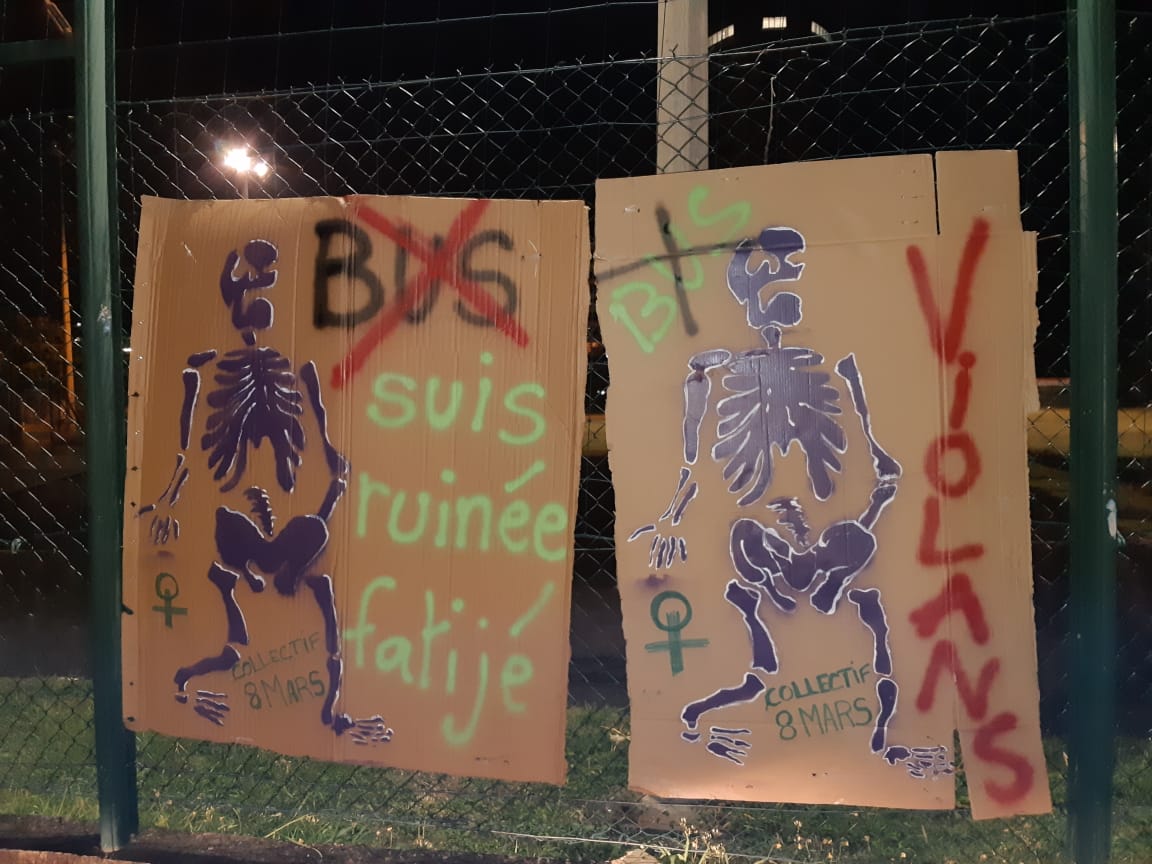 BUS
suis
ruinée
fatijé
COLLECTIF
8 MARS
BUS
VIOLANS
COLLECTIF
8 MARS